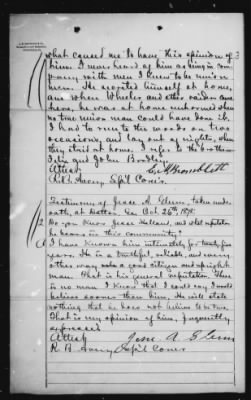 what caused me to have this opinion of 3
him. I never heard of him as being in com
pany with men I knew to be union
men. He resorted himself at home,
and when Wheeler and other raiders came
here, he was at home unharmed when
no true union man could have done it.
I had to run to the woods on two
occasions, and lay out of nights, when
they staid at home. I refer to the brothers
John Bradley.
Attest
R. B. Avery, Sp'l Com'r.
Testimony of Jesse A. Glenn, taken under
oath, at Dalton, Ga. Oct. 26th, 1878.
Do you know Jesse Holland, and what reputation
he bears in this community?
I have known him intimately for twenty five
years. He is a truthful, reliable, and every
other way make a good citizen and upright
man. That is his general reputation. There
is no man I know that I could say I would
believe sooner than him. He will state
nothing that he does not believe to be true.
That is my opinion of him, frequently
expressed
Attest Jesse A. Glenn
R. B. Avery, Sp'l Com'r